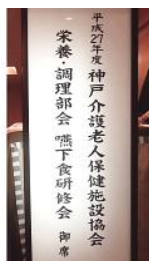 平成27年度 神戸介護老人保健施設協会
栄養・調理部会 嚥下食研修会 御席